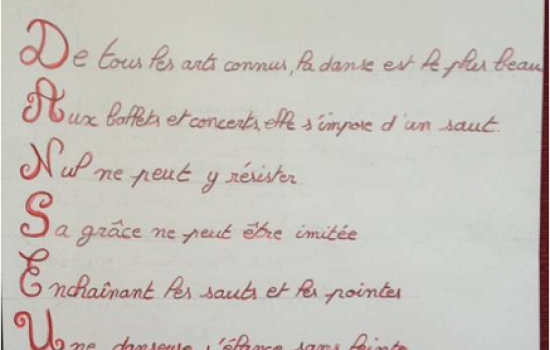 De tous les arts connus, la danse est le plus beau
Aux ballets et concerts, elle s'impose d'un saut.
Nul ne peut y résister
Sa grâce ne peut être imitée
Enchaînant les sauts et les pointes
Une danseuse s'élance sans feinte